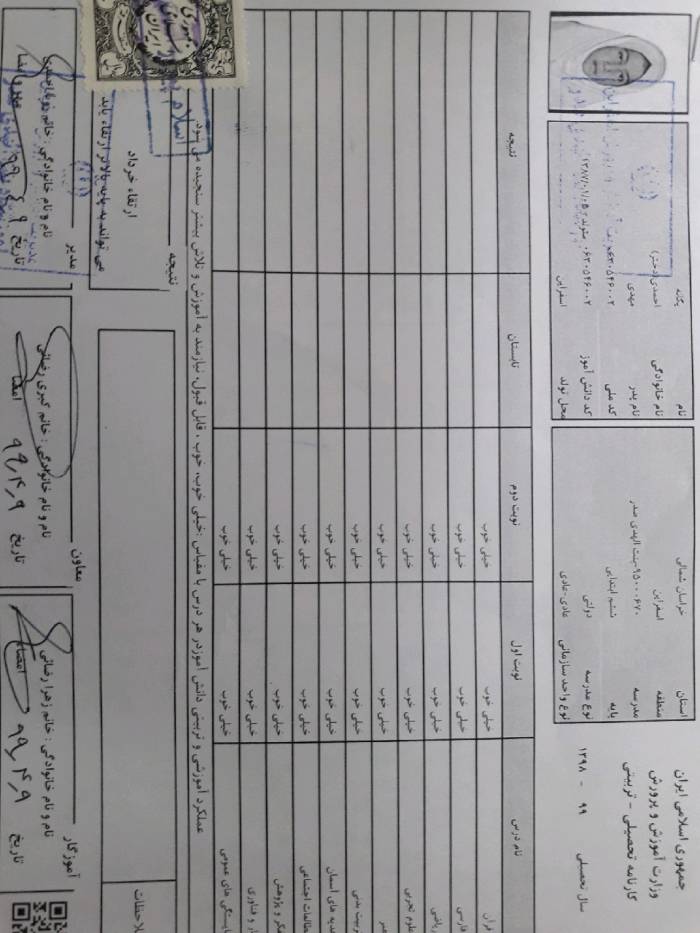 جمهوری اسلامی ایران
وزارت آموزش و پرورش
کارنامه تحصیلی - تربیتی
سال تحصیلی ۹۹ - ۱۳۹۸
استان خراسان شمالی
منطقه اسفراین
مدرسه ۹۵۰۰۰۶۷۰-بنت الهدی صدر
پایه ششم ابتدایی
نوع مدرسه دولتی
نوع واحد سازمانی عادی-عادی
نام یگانه
نام خانوادگی احمدی(دختر)
نام پدر مهدی
کد ملی
کد دانش آموز متولد: ۱۳۸۷/۰۱/۰۵
محل تولد اسفراین
نام درس نوبت اول نوبت دوم تابستان نتیجه
قرآن خیلی خوب خیلی خوب
فارسی خیلی خوب خیلی خوب
ریاضی خیلی خوب خیلی خوب
علوم تجربی خیلی خوب خیلی خوب
هنر خیلی خوب خیلی خوب
تربیت بدنی خیلی خوب خیلی خوب
هدیه های آسمان خیلی خوب خیلی خوب
مطالعات اجتماعی خیلی خوب خیلی خوب
تفکر و پژوهش خیلی خوب خیلی خوب
کار و فناوری خیلی خوب خیلی خوب
شایستگی های عمومی خیلی خوب خیلی خوب
عملکرد آموزشی و تربیتی دانش آموزدر هر درس با مقیاس :خیلی خوب، خوب ، قابل قبول، نیازمند به آموزش و تلاش بیشتر سنجیده می شود.
ملاحظات
نتیجه
ارتقاء خرداد
می تواند به پایه بالاتر ارتقاء یابد
آموزگار
نام و نام خانوادگی : خانم زهرا رضائی
تاریخ ۹۹,۴,۹ امضاء
معاون
نام و نام خانوادگی : خانم کبری رضائی
تاریخ ۹۹,۴,۹ امضاء
مدیر
نام و نام خانوادگی : خانم
تاریخ ۹۹,۴,۹